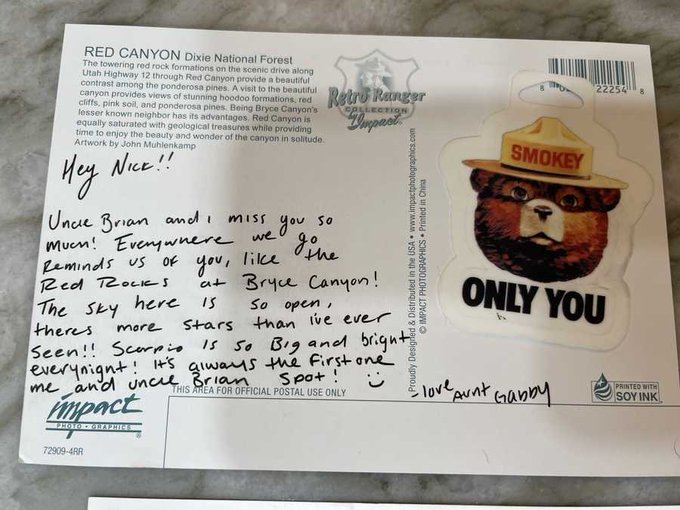 RED CANYON Dixie National Forest
The towering red rock formations on the scenic drive along
Utah Highway 12 through Red Canyon provide a beautiful
contrast among the ponderosa pines. A visit to the beautiful
canyon provides views of stunning hoodoo formations, red
cliffs, pink soil, and ponderosa pines. Being Bryce Canyon's
lesser known neighbor has its advantages. Red Canyon is
equally saturated with geological treasures while providing
time to enjoy the beauty and wonder of the canyon in solitude.
Artwork by John Muhlenkamp
Retro Ranger
COLLECTION
Impact
8
22254
8
Hey Nick!!
Uncle Brian and i miss you so
much! Everywhere we go
Reminds us of you, like the
Red Rocks at Bryce Canyon!
The sky here is so open,
theres more stars than i've ever
seen!! Scorpio is so Big and bright
everynight! it's always the first one
me and uncle Brian spot! :)
-love Aunt Gabby
SMOKEY
ONLY YOU
Proudly Designed & Distributed in the USA • www.impactphotographics.com
© IMPACT PHOTOGRAPHICS • Printed in China
THIS AREA FOR OFFICIAL POSTAL USE ONLY
impact
PHOTO • GRAPHICS
®
72909-4RR
PRINTED WITH
SOY INK